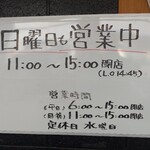 日曜日も営業中
11:00～15:00閉店
(L.O 14:45)
営業時間
(平日) 6:00～15:00閉店
(日祭) 11:00～15:00閉店
定休日 水曜日